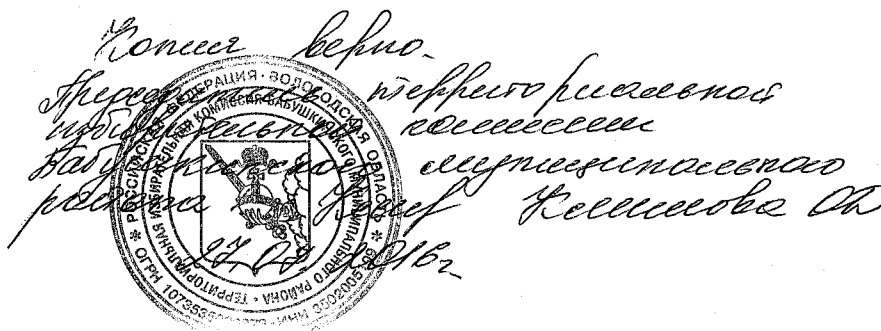 Копия верно.
Председатель территориальной
избирательной комиссии
Бабушкинского муниципального
района Климова
2016г
РОССИЙСКАЯ ФЕДЕРАЦИЯ · ВОЛОГОДСКАЯ ОБЛАСТЬ * ОГРН ИНН
ТЕРРИТОРИАЛЬНАЯ ИЗБИРАТЕЛЬНАЯ КОМИССИЯ БАБУШКИНСКОГО МУНИЦИПАЛЬНОГО РАЙОНА